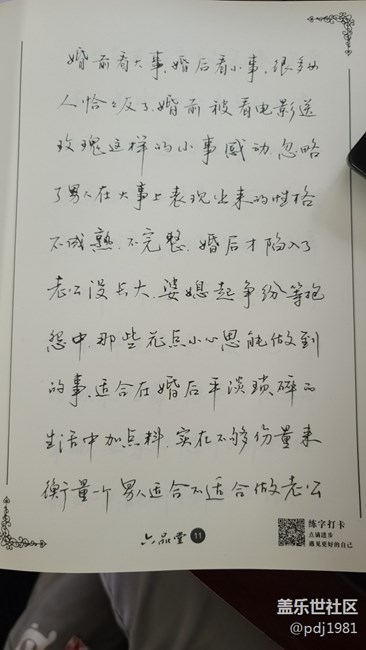 婚前看大事,婚后看小事,很多女
人恰恰反了,婚前被看电影送
玫瑰这样的小事感动忽略
了男人在大事上表现出来的性格
不成熟、不完整,婚后才陷入了
老公没长大、婆媳起争纷等抱
怨中,那些花点小心思能做到
的事,适合在婚后平淡琐碎的
生活中加点料,实在不够份量来
衡量一个男人适合不适合做老公
六品堂 11
练字打卡
点滴进步
遇见更好的自己
盖乐世社区
@pdj1981